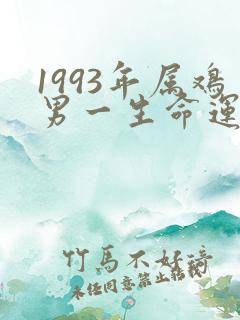 1993年属鸡
男一生命运
竹马不好骑
未经同意禁止转载